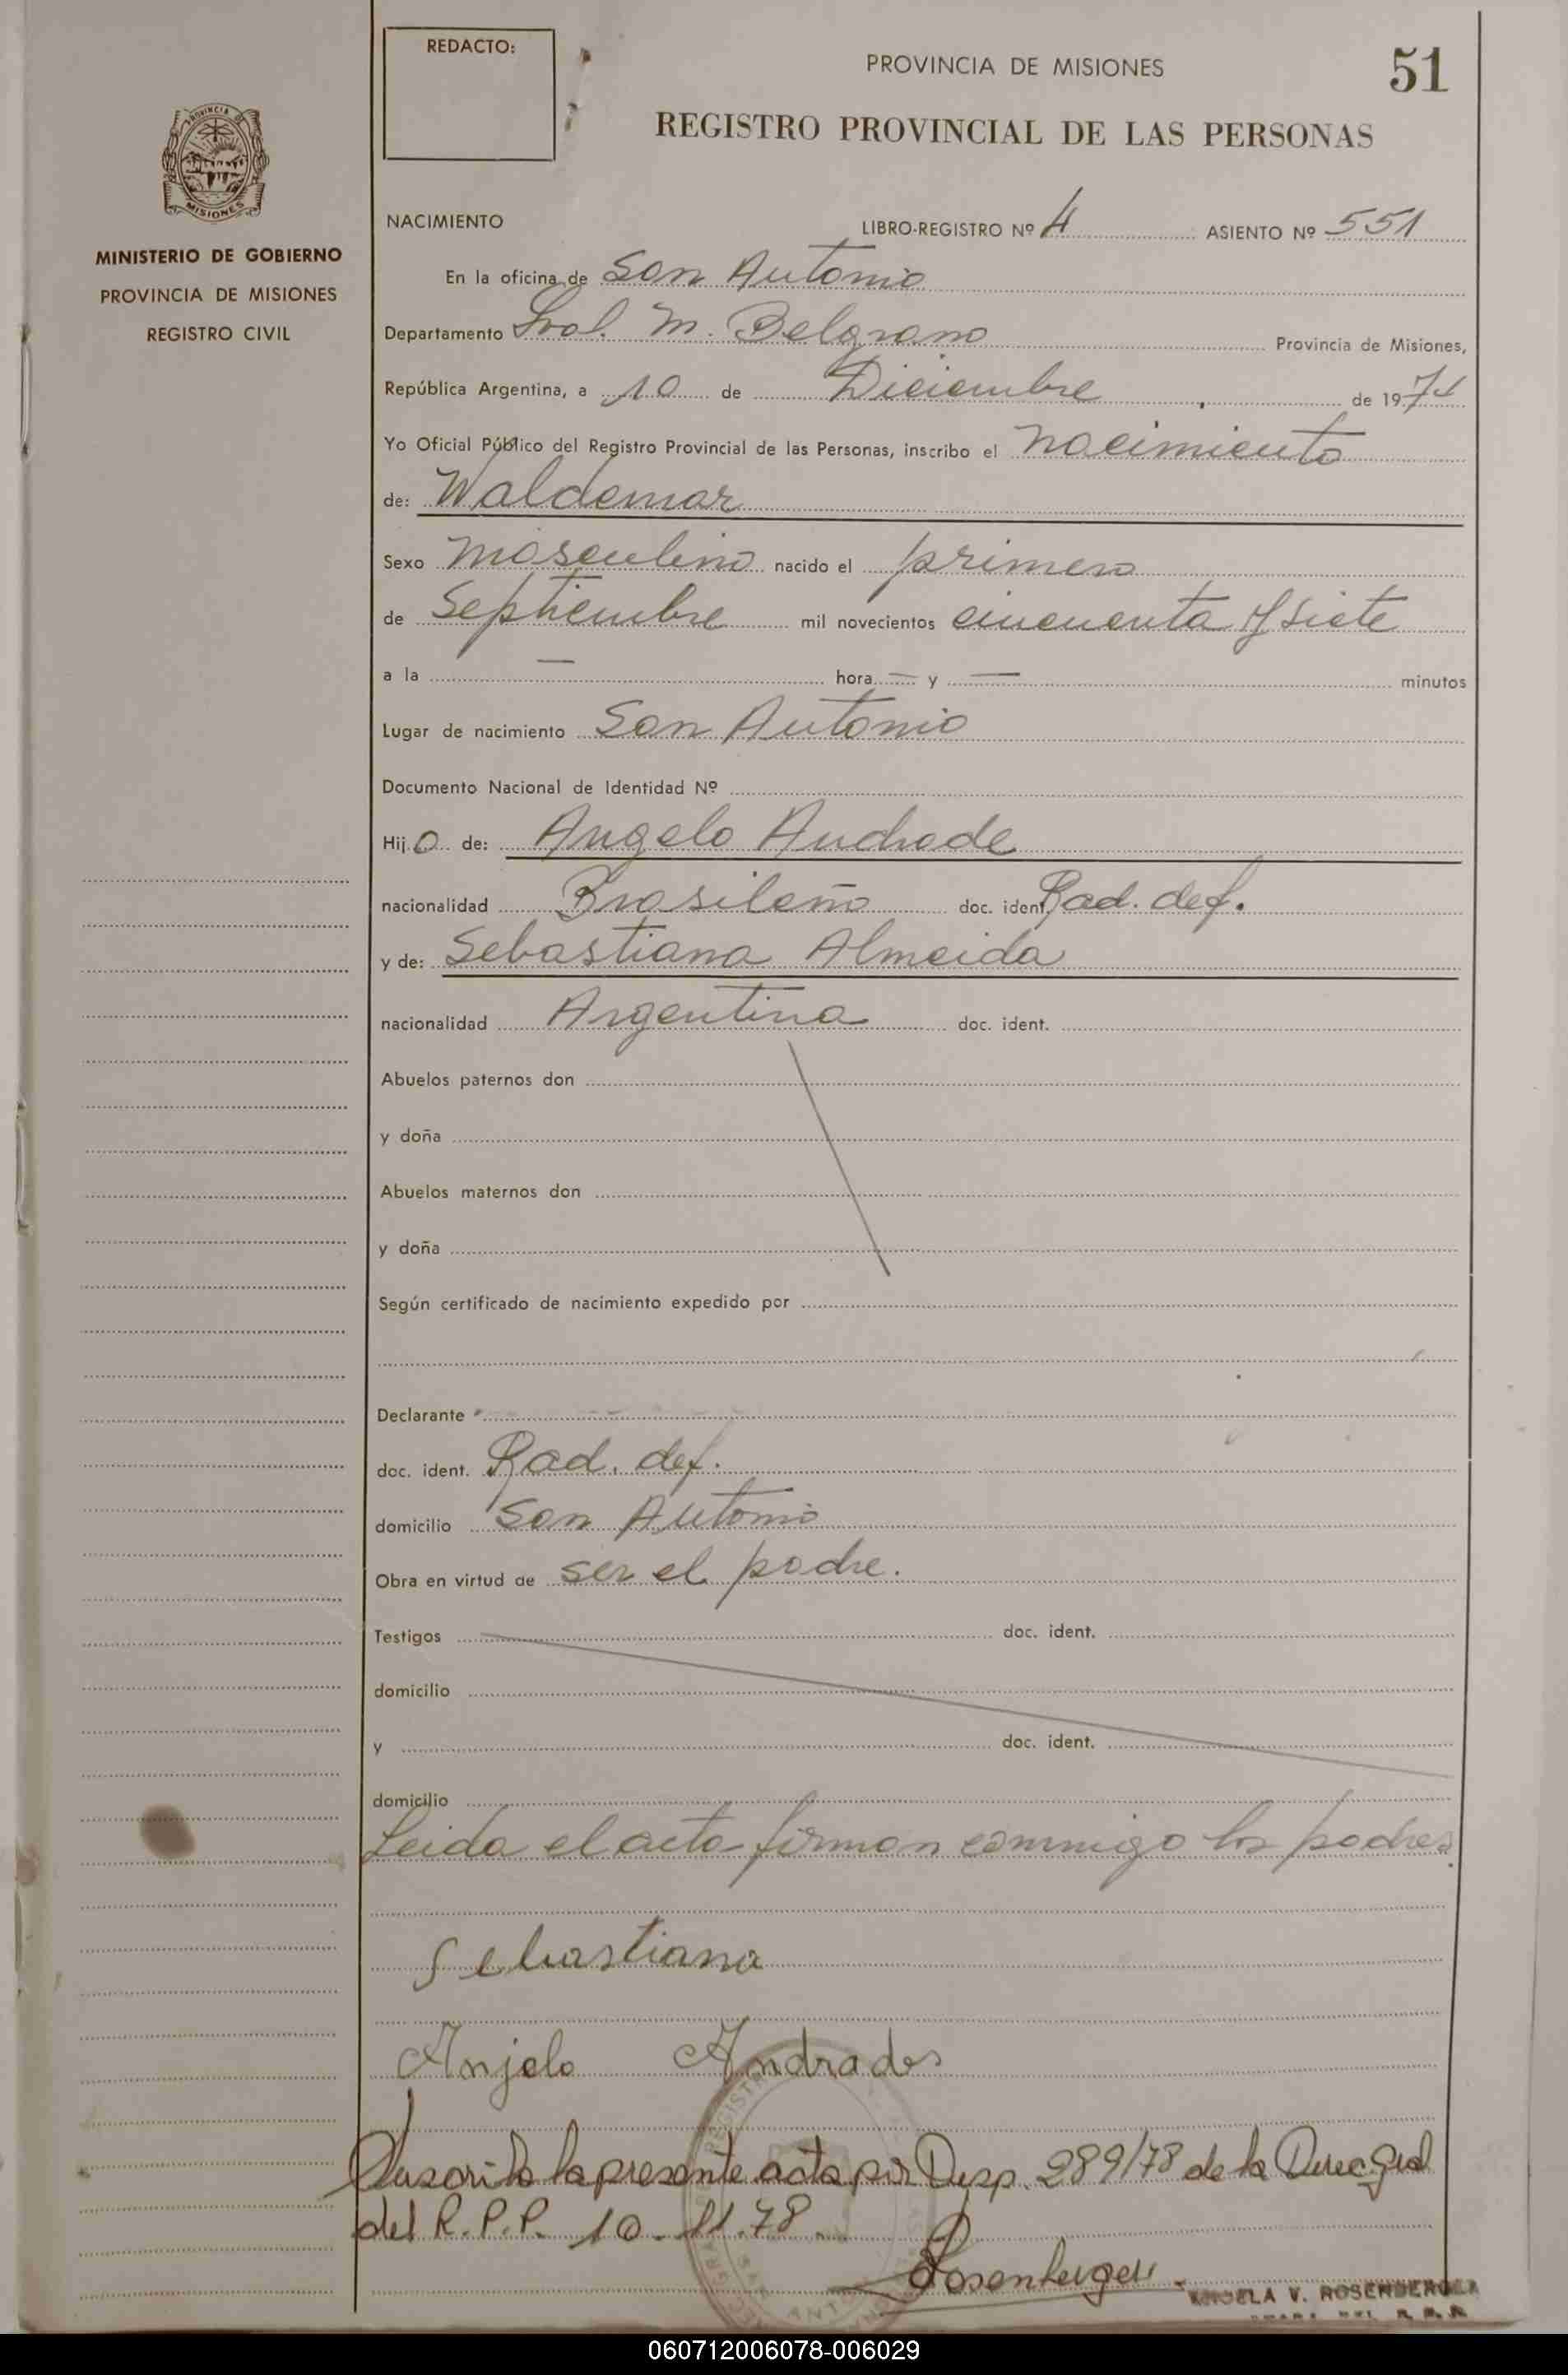 REDACTO:
PROVINCIA DE MISIONES
51
REGISTRO PROVINCIAL DE LAS PERSONAS
PROVINCIA DE
MISIONES
MINISTERIO DE GOBIERNO
PROVINCIA DE MISIONES
REGISTRO CIVIL
NACIMIENTO LIBRO-REGISTRO Nº 4 ASIENTO Nº 551
En la oficina de San Antonio
Departamento Gral. M. Belgrano Provincia de Misiones,
República Argentina, a 10 de Diciembre de 1974
Yo Oficial Público del Registro Provincial de las Personas, inscribo el nacimiento
de: Waldemar
Sexo masculino nacido el primero
de Septiembre mil novecientos cincuenta y siete
a la — hora — y — minutos
Lugar de nacimiento San Antonio
Documento Nacional de Identidad Nº
Hijo de: Angelo Andrade
nacionalidad Brasileño doc. ident. Rad. def.
y de: Sebastiana Almeida
nacionalidad Argentina doc. ident.
Abuelos paternos don
y doña
Abuelos maternos don
y doña
Según certificado de nacimiento expedido por
Declarante
doc. ident. Rad. def.
domicilio San Antonio
Obra en virtud de ser el padre.
Testigos doc. ident.
domicilio
y doc. ident.
domicilio
Leida el acta firman conmigo los padres.
Sebastiana
Anjelo Andrades
la presente acta por Disp. 289/78 de la Direc. Gral
del R.P.P. 10.11.78.
Rosenberger
V. ROSENBERGER
060712006078-006029